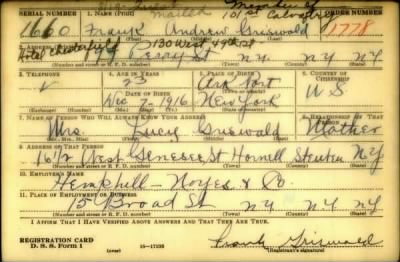 member of
mailed 101st Cavalry
SERIAL NUMBER 1. NAME (Print) ORDER NUMBER
1660 Frank Andrew Griswald 1778
Hotel Chesterfield 130 West 49th St
Perry St N.Y. N.Y. N.Y.
3. TELEPHONE 4. AGE IN YEARS 5. PLACE OF BIRTH 6. COUNTRY OF CITIZENSHIP
23 Ark Port
DATE OF BIRTH
Dec 7-1916 New York U S
(Exchange) (Number) (Mo.) (Day) (Yr.) (State or county)
7. NAME OF PERSON WHO WILL ALWAYS KNOW YOUR ADDRESS 8. RELATIONSHIP OF THAT PERSON
Mrs. Lucy Griswald Mother
(Mr., Mrs., Miss) (First) (Middle) (Last)
9. ADDRESS OF THAT PERSON
16 1/2 West Genesee St Hornell Steuben N.Y.
(Number and street or R. F. D. number) (Town) (County) (State)
10. EMPLOYER'S NAME
Hemphill-Noyes & Co.
11. PLACE OF EMPLOYMENT OR BUSINESS
15 Broad St N.Y. N.Y. N.Y.
(Number and street or R. F. D. number) (Town) (County) (State)
I AFFIRM THAT I HAVE VERIFIED ABOVE ANSWERS AND THAT THEY ARE TRUE.
REGISTRATION CARD
D. S. S. Form 1 (over) 16-17105 Frank Griswald
(Registrant's signature)